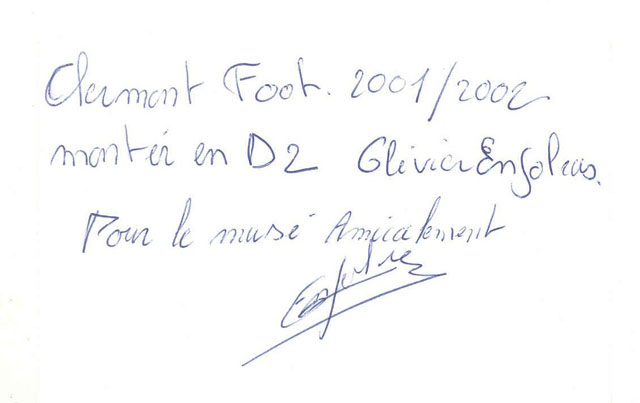 Clermont Foot. 2001/2002
montée en D2 Olivier Enjolras.
Pour le musé Amicalement
Enjolras